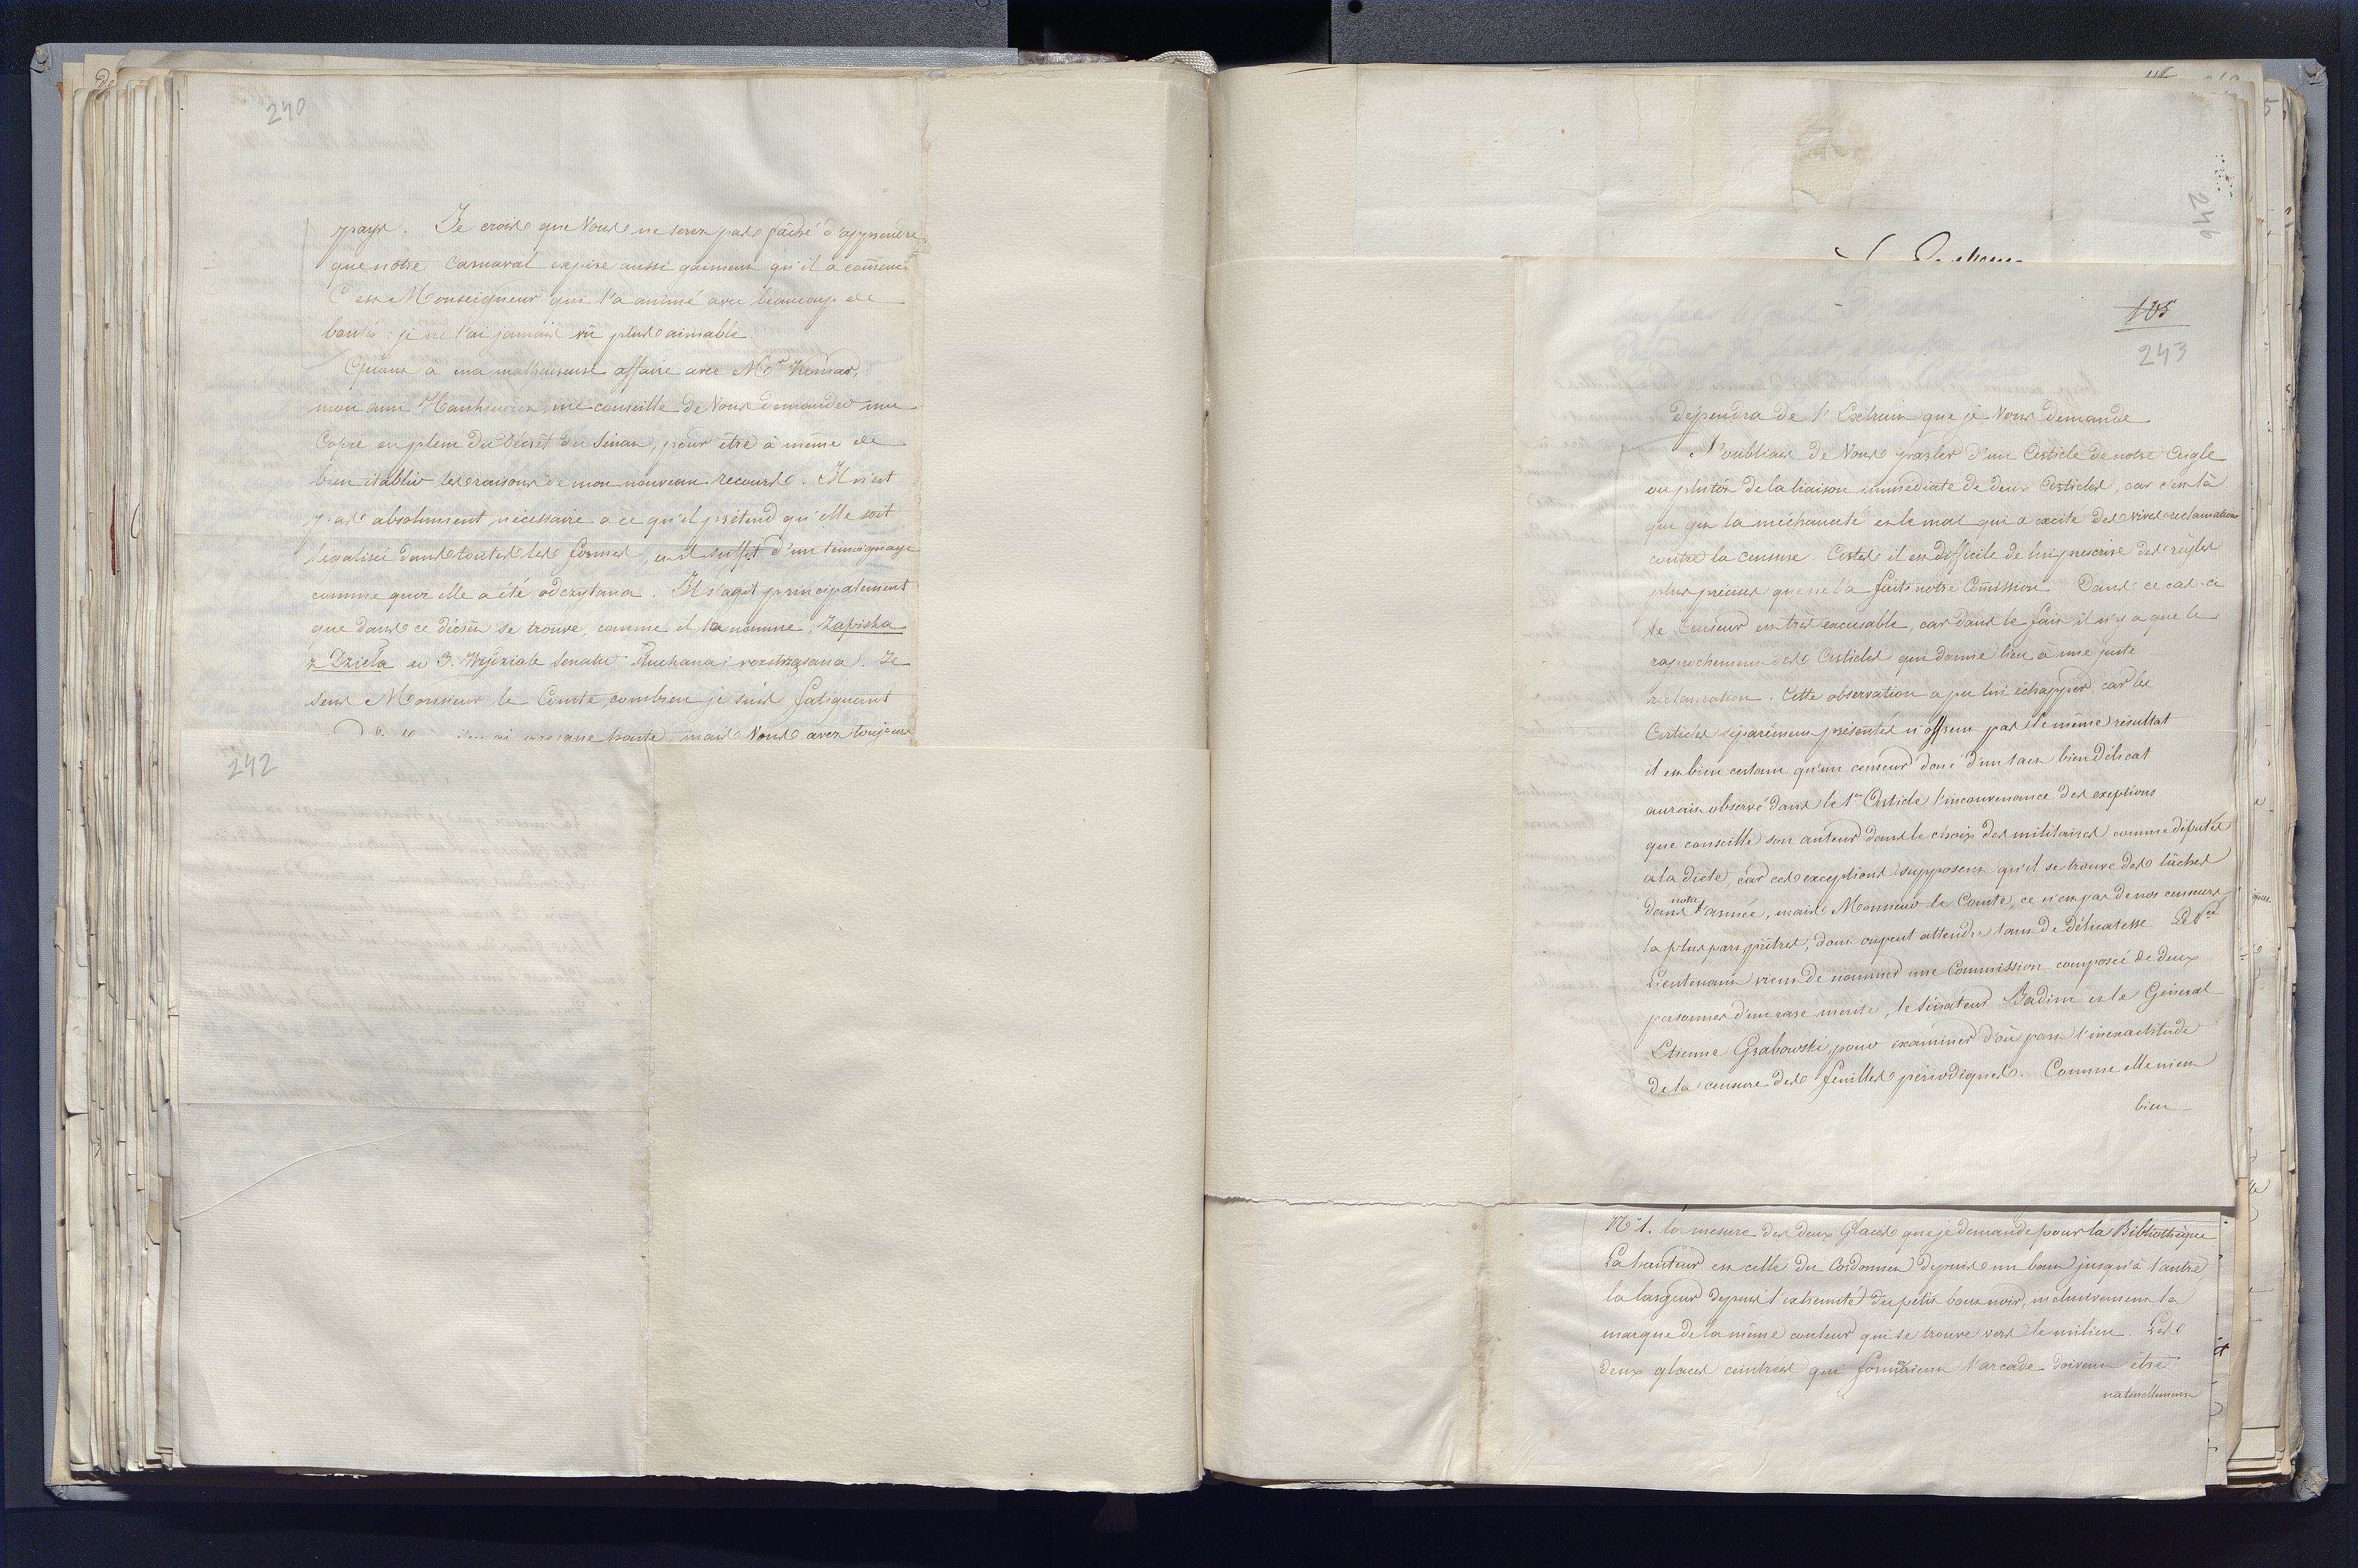 240
pays. Je crois que Vous ne serez pas fâché d'apprendre
que nôtre Carnaval expire aussi gaiment qu'il a comencé
C'est Monseigneur qui l'a animé avec beaucoup de
bonté : je ne l'ai jamais vû plus aimable
Quant à ma malheureuse affaire avec Mr
mon ami me conseille de Vous demander une
Copie en plein du Décret du Sénat, pour être à même de
bien établir les raisons de mon nouveau recours. Il n'est
pas absolument nécessaire à ce qu'il prétend qu'elle soit
legalisée dans toutes les formes, et il suffit d'un témoignage
comme quoi elle a été odczytana. Il s'agit principalement
que dans ce décret se trouve, comme il la nomme, Zapiska
z Dzieła w 3. Wydziale Senatu Słuchana i roztrząsana. Je
sens Monsieur le Comte, combien je suis fatiguant
presque honte, mais Vous avez toujours
242
246
105
243
dépendra de l'Extrait que je Vous demande
J'oubliais de Vous parler d'un Article de notre Aigle
ou plutôt de la liaison immédiate de deux Articles, car c'est là
que gît la méchanceté et le mal qui a excité des vives reclamations
contre la censure. Certes il est difficile de lui prescrire des règles
plus précises que ne l'a faite notre Comission. Dans ce cas-ci
le Censeur est très excusable, car dans le fait il n'y a que le
raprochement des Articles qui donne lieu à une juste
réclamation. Cette observation a pu lui échapper, car les
Articles séparément présentés n'offrent pas le même résultat
il est bien certain qu'un censeur doué d'un tact bien délicat
aurait observé dans le 1er Article l'inconvenance des exeptions
que conseille son auteur dans le choix des militaires comme députés
à la diète, car ces exceptions supposent qu'il se trouve des lâches
dans notre armée, mais Monsieur le Comte, ce n'est pas de nos censeurs
la plus part prêtres, dont on peut attendre tant de délicatesse. Le Pce
Lieutenant vient de nommer une Commission composée de deux
personnes d'un rare mérite, le Sénateur Badini et le Général
Etienne Grabowski, pour examiner d'où part l'inexactitude
de la censure des feuilles périodiques. Comme elle vient
bien
No 1. la mesure des deux Glaces que je demande pour la Bibliothèque
La hauteur est celle du Cordonnet depuis un bout jusqu'à l'autre,
la largeur depuis l'extrémité du petit bout noir, inclusivement la
marque de la même couleur qui se trouve vers le milieu. Les
deux glaces ceintrées qui formaient l'arcade doivent être
naturellement